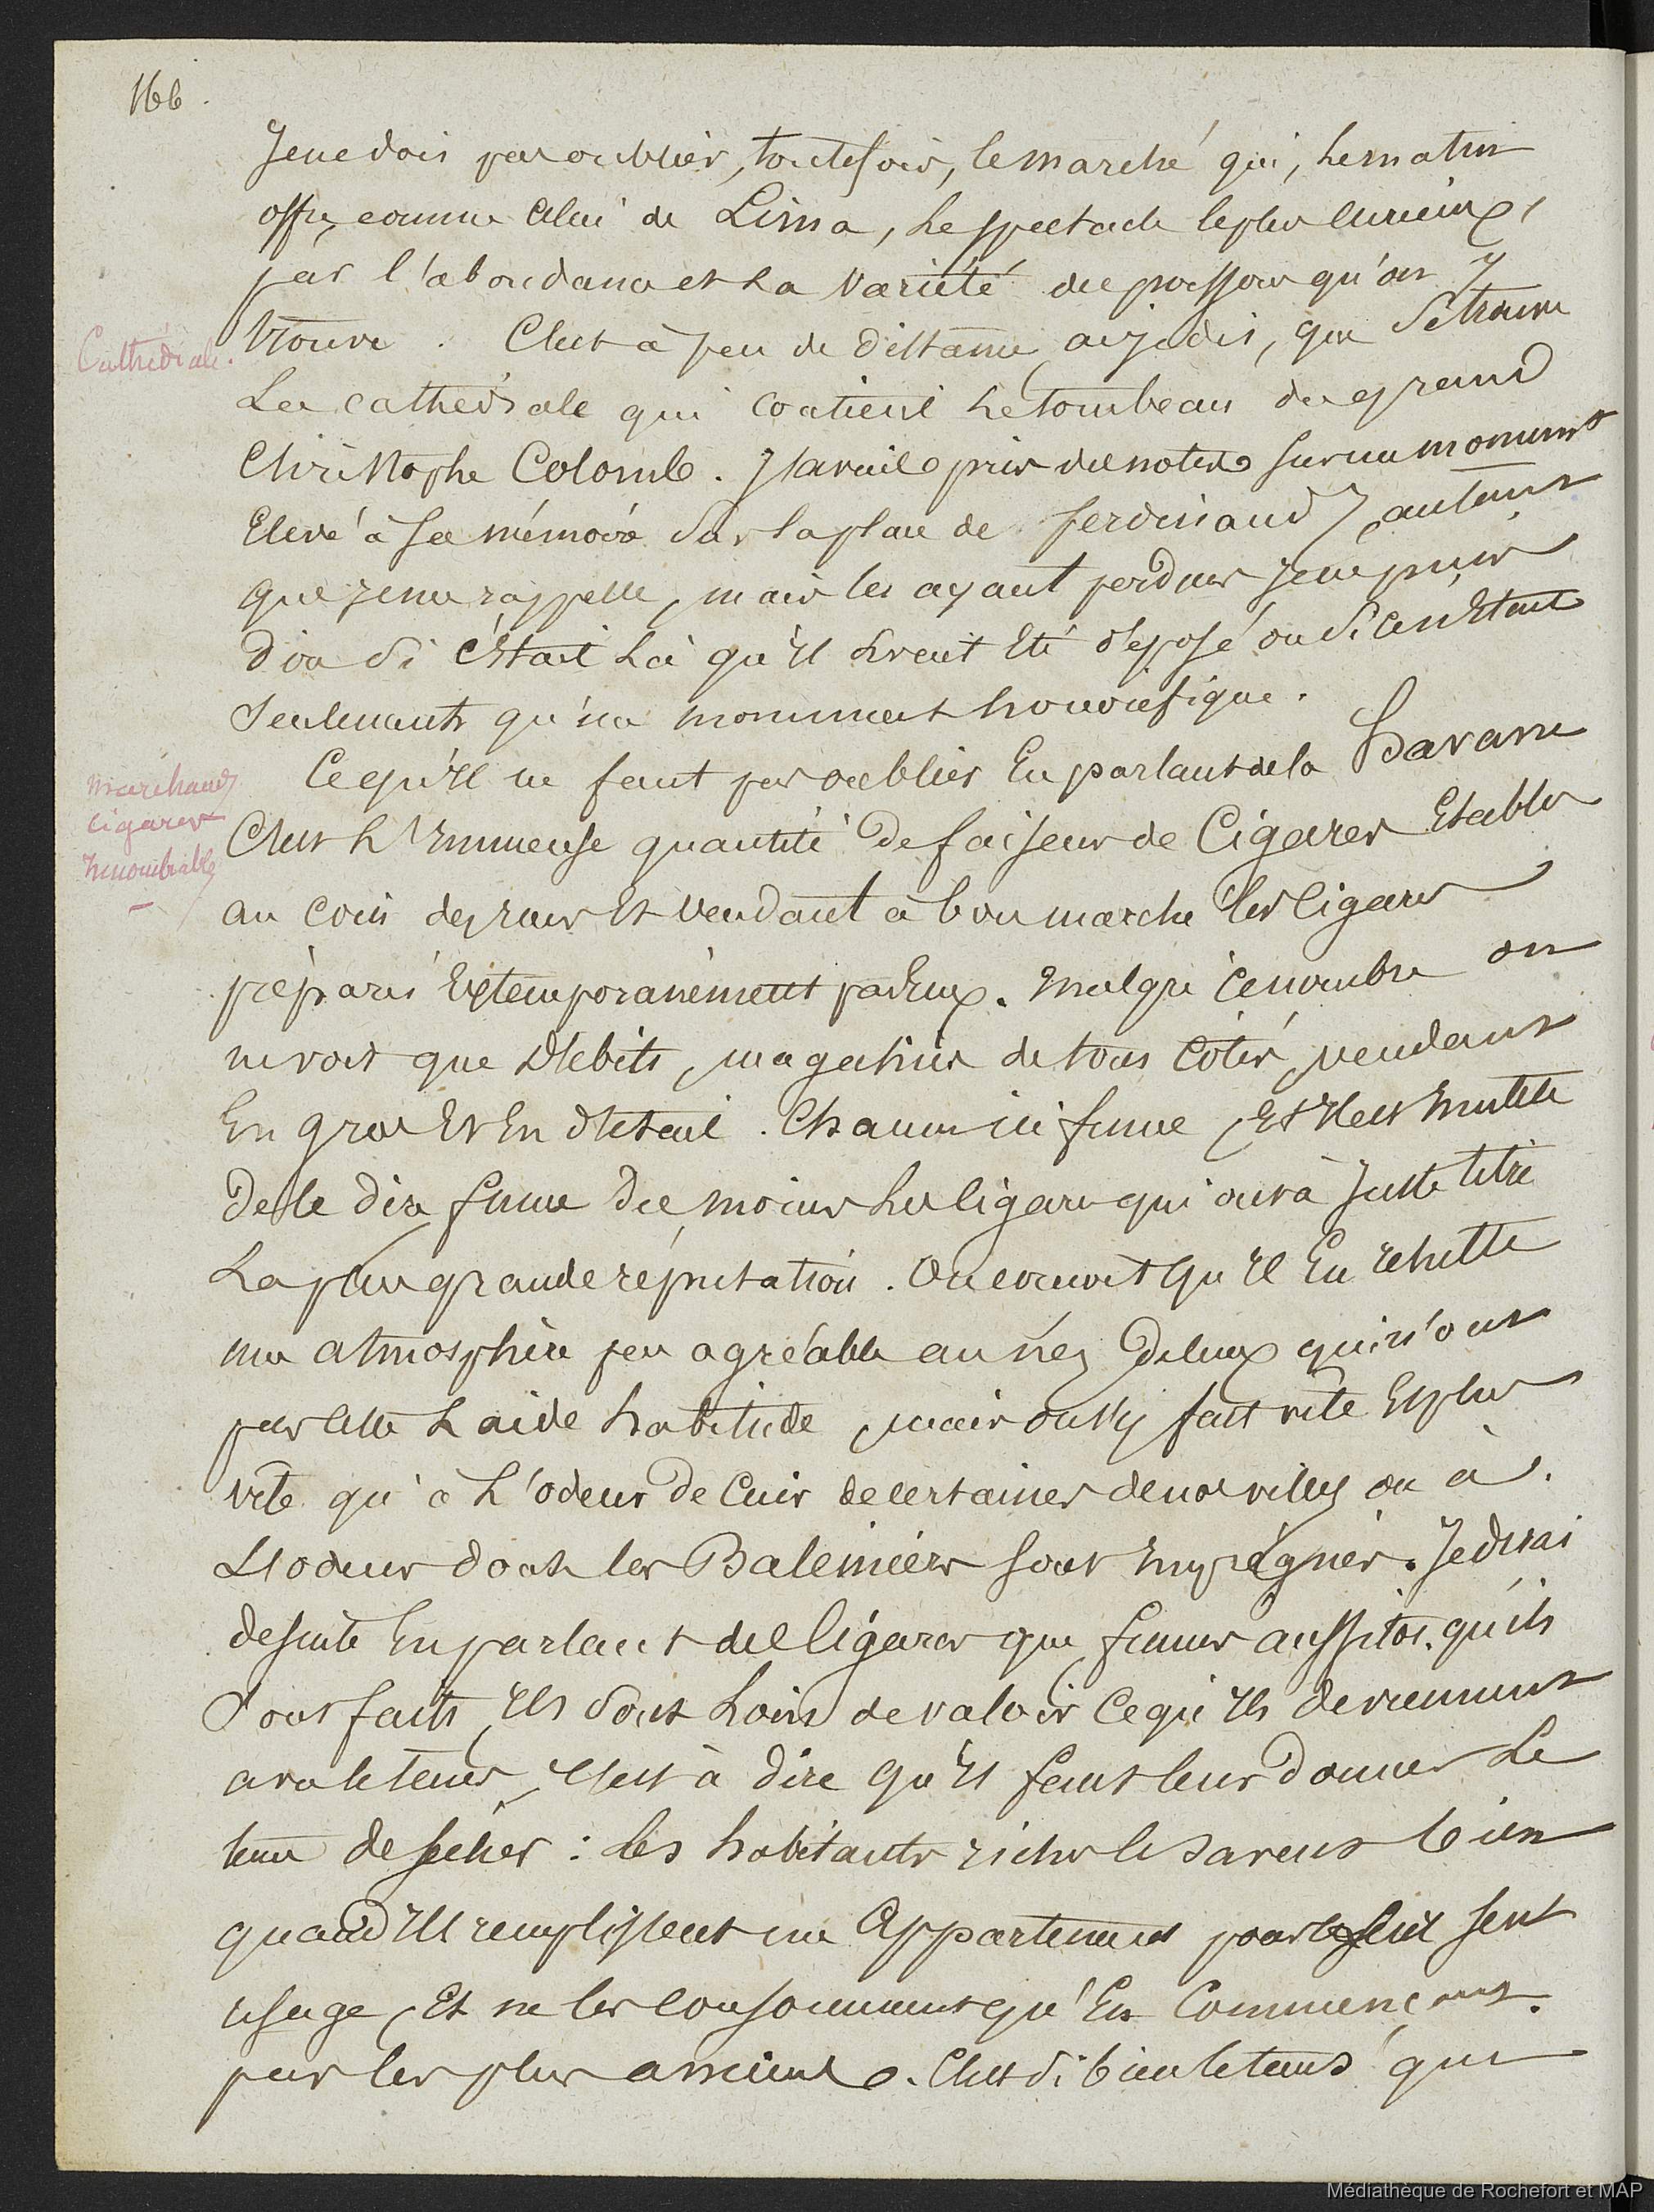 166.
Je ne dois pas oublier, toutefois, le marché qui, le matin
offre, comme celui de Lima, le spectacle le plus curieux,
par l'abondance et la variété des poissons qu'on y
Cathédrale.
trouve. C'est à peu de distance, ai je dis, que se trouve
La cathédrale qui contient le tombeau du grand
Christophe Colomb. J'avais pris des notes sur un monument
Elevé à sa mémoire sur la place de ferdinand 7, autant
que je me rappelle, mais les ayant perdues je ne puis
dire si c'était là qu'il avait Eté déposé ou si ce n'Etait
seulement qu'un monument honorifique.
Ce qu'il ne faut pas oublier En parlant de la Havane
Marchands
cigares
Innombrables
C'est L'Immense quantité de faiseurs de Cigares Etablis
au coin des rues Et vendant à bon marché les Cigares
préparés Extemporanément par Eux. Malgré ce nombre on
ne voit que Débits, magasins de tous côtés, vendant
En gros Et En Détail. Chacun ici fume, Et Il est Inutile
De le dire fume du moins le Cigare qui aura à juste titre
La plus grande réputation. On conçoit qu'Il En résulte
une atmosphère peu agréable au nez De ceux qui n'ont
pas cette Laide habitude, mais on s'y fait vite Et plus
vite qu'à L'odeur De Cuir de certaines de nos villes ou à
L'odeur dont les Baleiniers sont Imprégnés. Je dirai
de suite En parlant des Cigares que fumés aussitôt qu'ils
Sont faits, Ils Sont Loin de valoir Ce qu'Ils deviennent
avec le tems, C'est à dire qu'Il faut leur Donner Le
tems de sécher : les habitants riches le savent bien
quand Ils remplissent un Appartement pour seul
usage, Et ne les consomment qu'En Commençant
par les plus anciens. C'est si bien le tems qui
Médiathèque de Rochefort et MAP